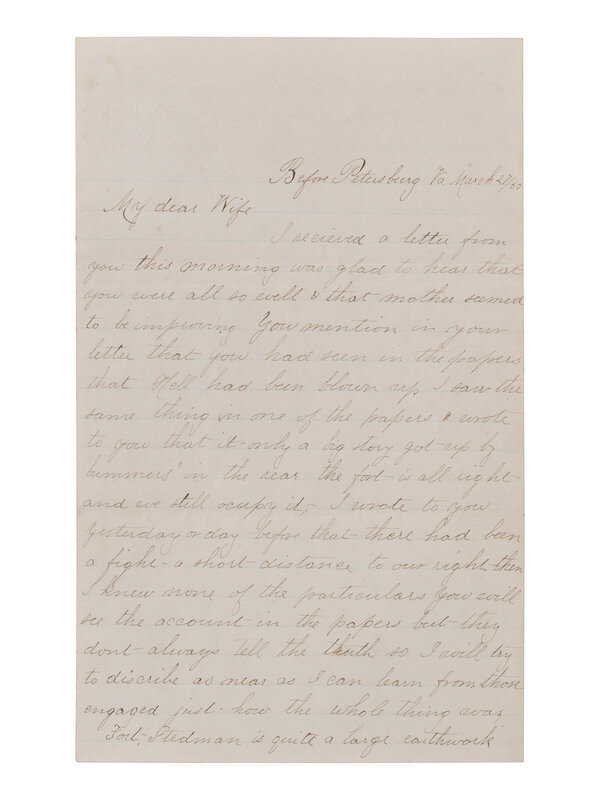 Before Petersburg Va. March 27/65
My dear Wife
I recieved a letter from
you this morning was glad to hear that
you were all so well & that mother seemed
to be improving You mention in your
letter that you had seen in the papers
that Hell had been blown up I saw the
same thing in one of the papers & wrote
to you that it only a big story got up by
"bummers" in the rear the fort is all right
and we still occupy it,- I wrote to you
yesterday or day before that there had been
a fight a short distance to our right then
I knew none of the particulars you will
see the account in the papers but they
dont always tell the truth so I will try
to discribe as near as I can learn from those
engaged just how the whole thing was
Fort Stedman is quite a large earthwork